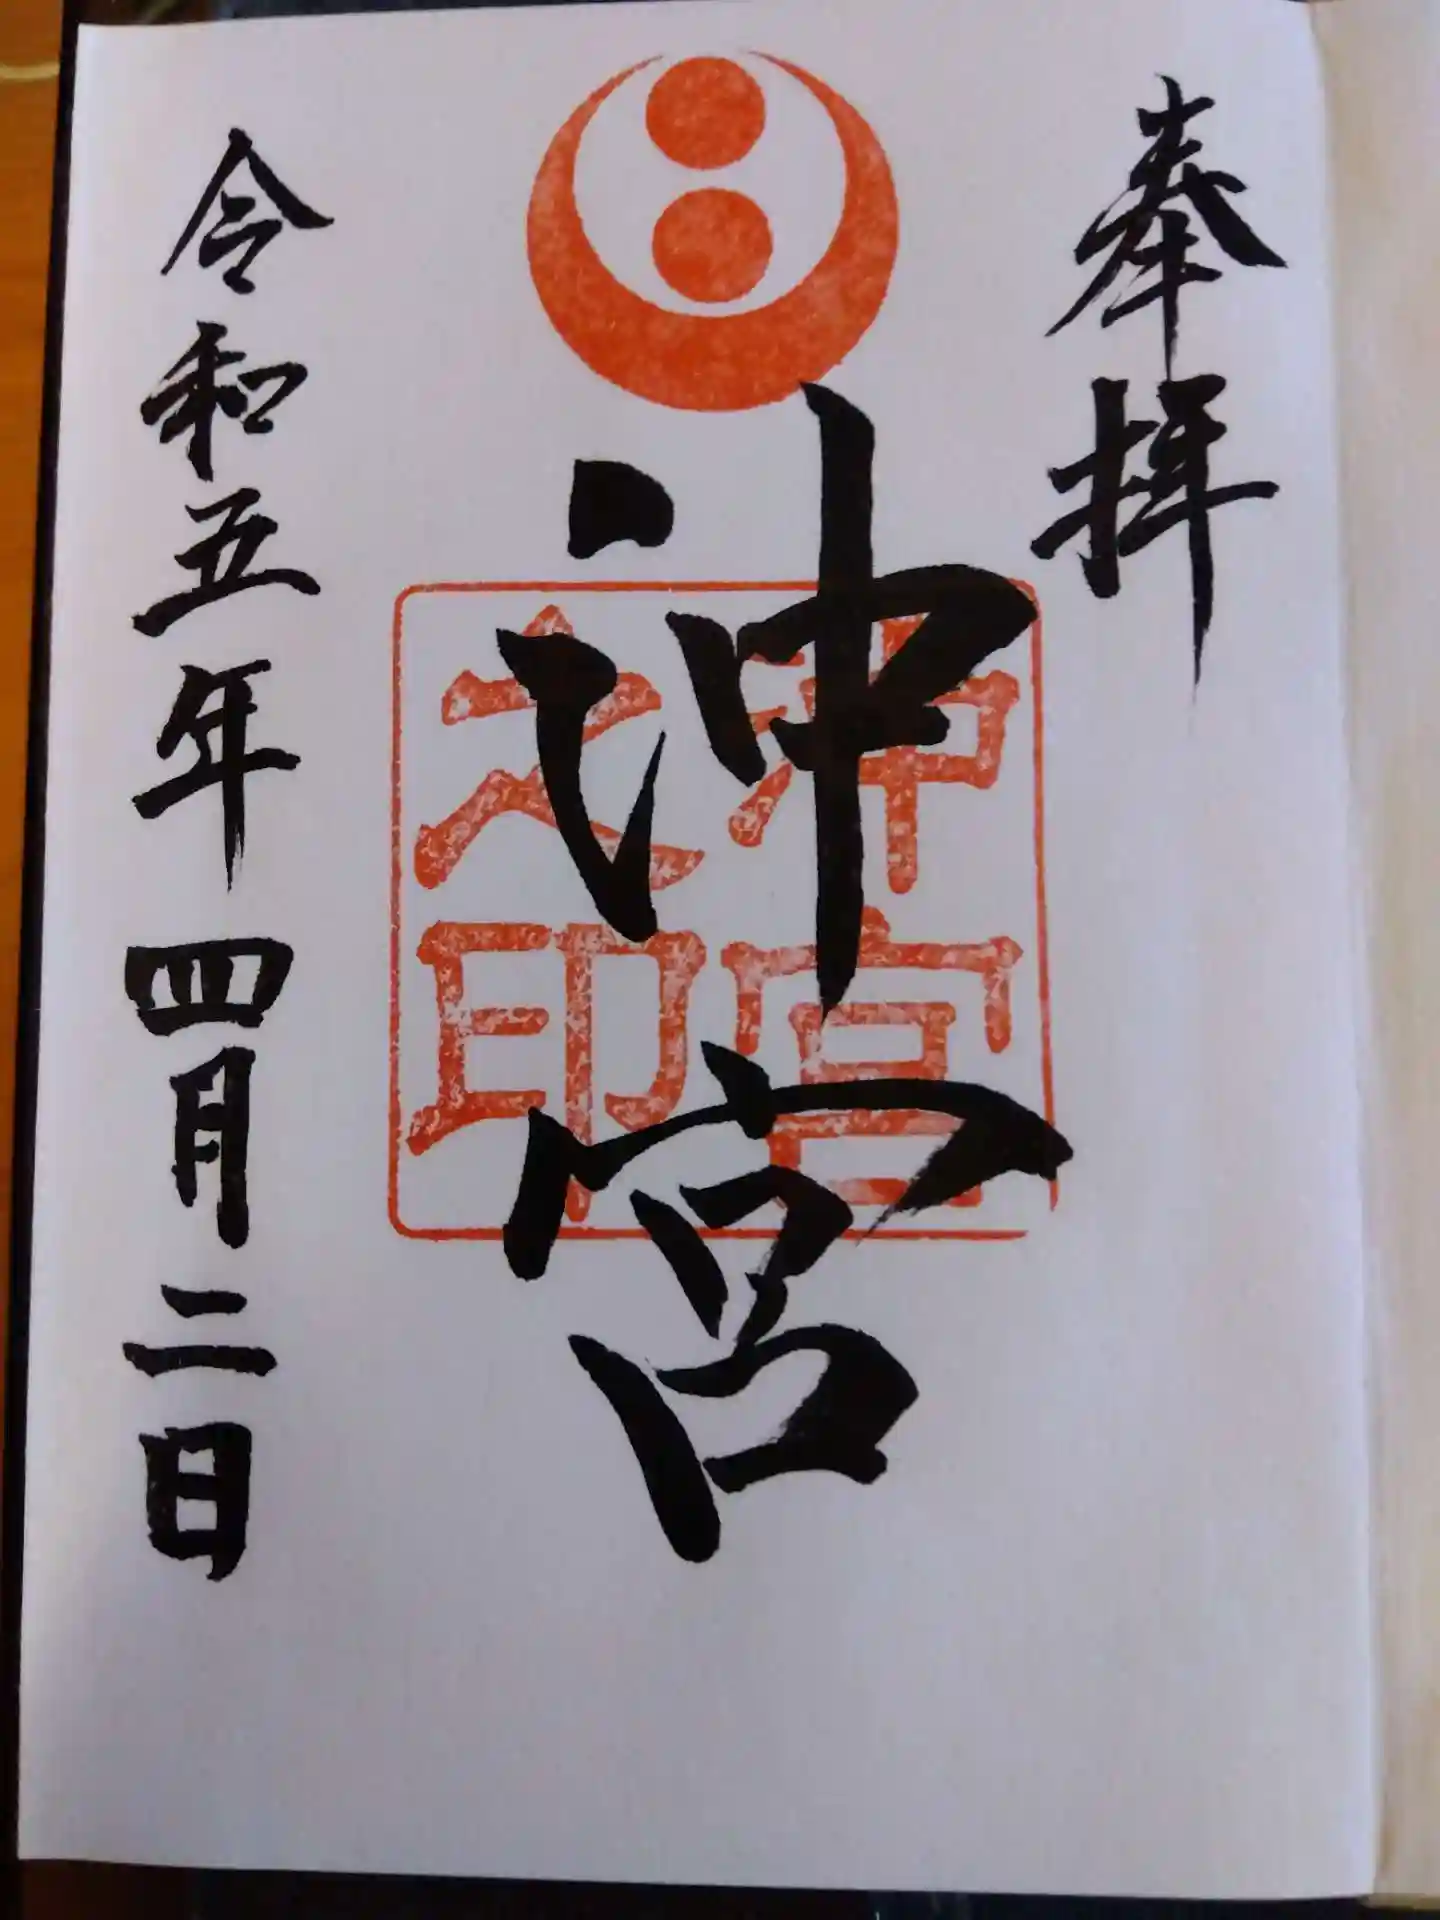 奉拝
沖宮
沖宮
之印
令和五年四月二日